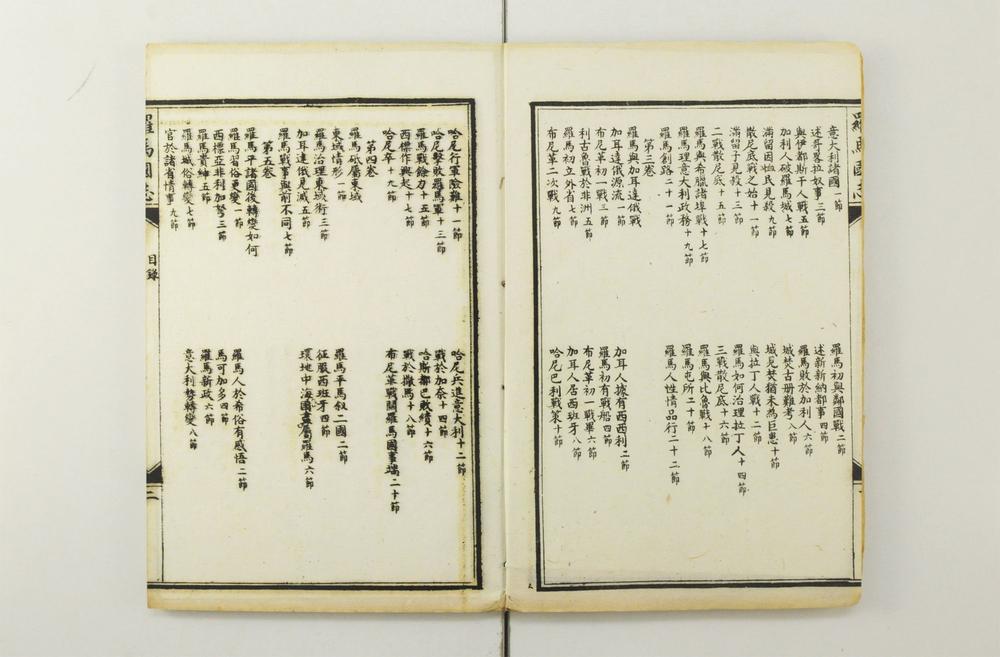 意大利諸國一節
羅馬初與鄰國戰二節
述哥畧拉奴事三節
述新新納都事四節
與伊都斯干人戰五節
羅馬敗於加利人六節
加利人破羅馬城七節
城焚古册難考八節
滿留因恤民見殺九節
城見焚猶未為巨患十節
散尼底戰之始十一節
與拉丁人戰十二節
滿留子見殺十三節
羅馬如何治理拉丁人十四節
二戰散尼底十五節
三戰散尼底十六節
羅馬與希臘諸埠戰十七節
羅馬與比魯戰十八節
羅馬理意大利政務十九節
羅馬屯所二十節
羅馬創路二十一節
羅馬人性情品行二十二節
第三卷
羅馬與加耳達俄戰
加耳達俄源流一節
加耳人據有西西利二節
布尼革初一戰三節
羅馬初有戰船四節
利古魯戰於非洲五節
布尼革初一戰畢六節
羅馬初立外省七節
加耳人居西班牙八節
布尼革二次戰九節
哈尼巴利戰策十節
羅馬國志
哈尼行軍險難十一節
哈尼兵進意大利十二節
哈尼擊敗羅馬軍十三節
戰於加奈十四節
羅馬戰餘力十五節
哈斯都巴敗績十六節
西標作興起十七節
戰於撒馬十八節
哈尼卒十九節
布尼革戰關羅馬國事端二十節
第四卷
羅馬砥屬東域
東域情形一節
羅馬平馬叙二國二節
羅馬治理東域術三節
征服西班牙四節
加耳達俄見滅五節
環地中海國盡屬羅馬六節
羅馬戰事與前不同七節
第五卷
羅馬平諸國後轉變如何
羅馬習俗更變一節
羅馬人於希俗有感悟二節
西標亞非利加弩三節
馬可加多四節
羅馬貴紳五節
羅馬新政六節
羅馬城俗轉變七節
意大利勢轉變八節
官於諸有情事九節
羅馬國志
目錄
二